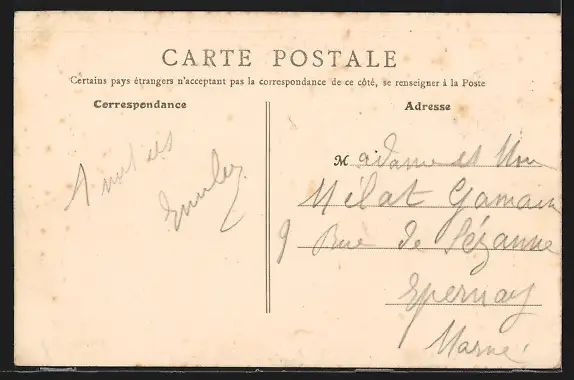 CARTE POSTALE
Certains pays étrangers n'acceptant pas la correspondance de ce côté, se renseigner à la Poste
Correspondance
Adresse
Madame et Mon
Gamain
9 Rue de Sézanne
Epernay
Marne